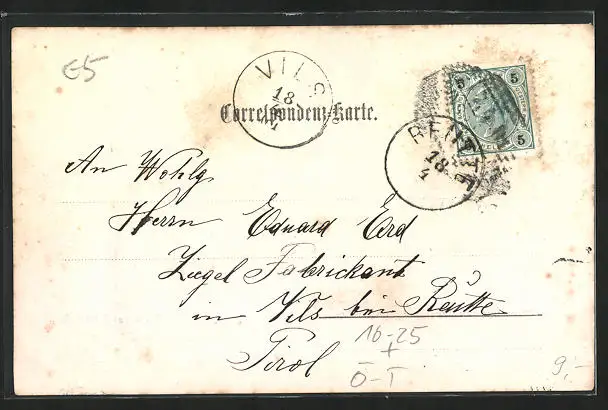 €5
VILS
18
4
5
5
5
Correspondenz-Karte.
REUTTE
18
4
An Wohlg.
Herrn Eduard Erd
Ziegel Fabrickant
in Vils bei Reutte
Tirol
16-25
+
Ö-T
9,-